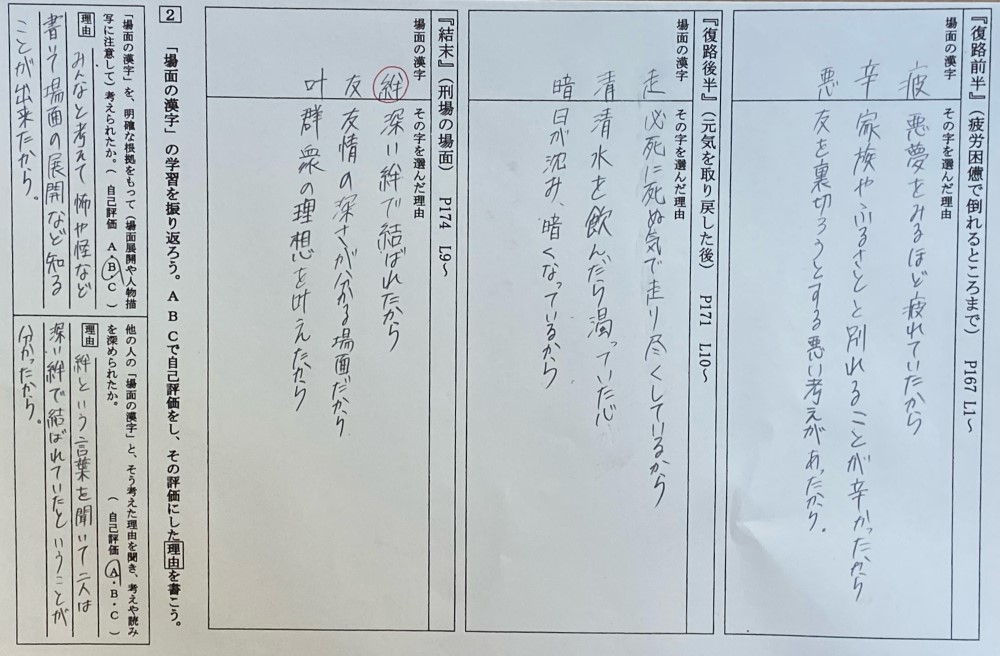 『復路前半』（疲労困憊で倒れるところまで） P167 L1～
場面の漢字 その字を選んだ理由
疲 悪夢をみるほど疲れていたから
辛 家族やふるさとと別れることが辛かったから
悪 友を裏切ろうとする悪い考えがあったから。
『復路後半』（元気を取り戻した後） P171 L10～
場面の漢字 その字を選んだ理由
走 必死に死ぬ気で走り尽くしているから
清 清水を飲んだら濁っていた心
暗 日が沈み、暗くなっているから
『結末』（刑場の場面） P174 L9～
場面の漢字 その字を選んだ理由
絆 深い絆で結ばれたから
友 友情の深さが分かる場面だから
叶 群衆の理想を叶えたから
2 「場面の漢字」の学習を振り返ろう。ＡＢＣで自己評価をし、その評価にした理由を書こう。
「場面の漢字」を、明確な根拠をもって（場面展開や人物描
写に注意して）考えられたか。（ 自己評価 Ａ・Ｂ・Ｃ ）
理由 みんなと考えて怖や怪など
書いて場面の展開など知る
ことが出来たから。
他の人の「場面の漢字」と、そう考えた理由を聞き、考えや読み
を深められたか。 （ 自己評価 Ａ・Ｂ・Ｃ ）
理由 絆という言葉を聞いて二人は
深い絆で結ばれていたということが
分かったから。